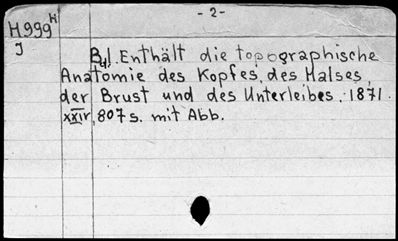 - 2 -
H 999 K
J
Bd I. Enthält die topographische
Anatomie des Kopfes, des Halses,
der Brust und des Unterleibes. 1871.
XXIV, 807 s. mit Abb.